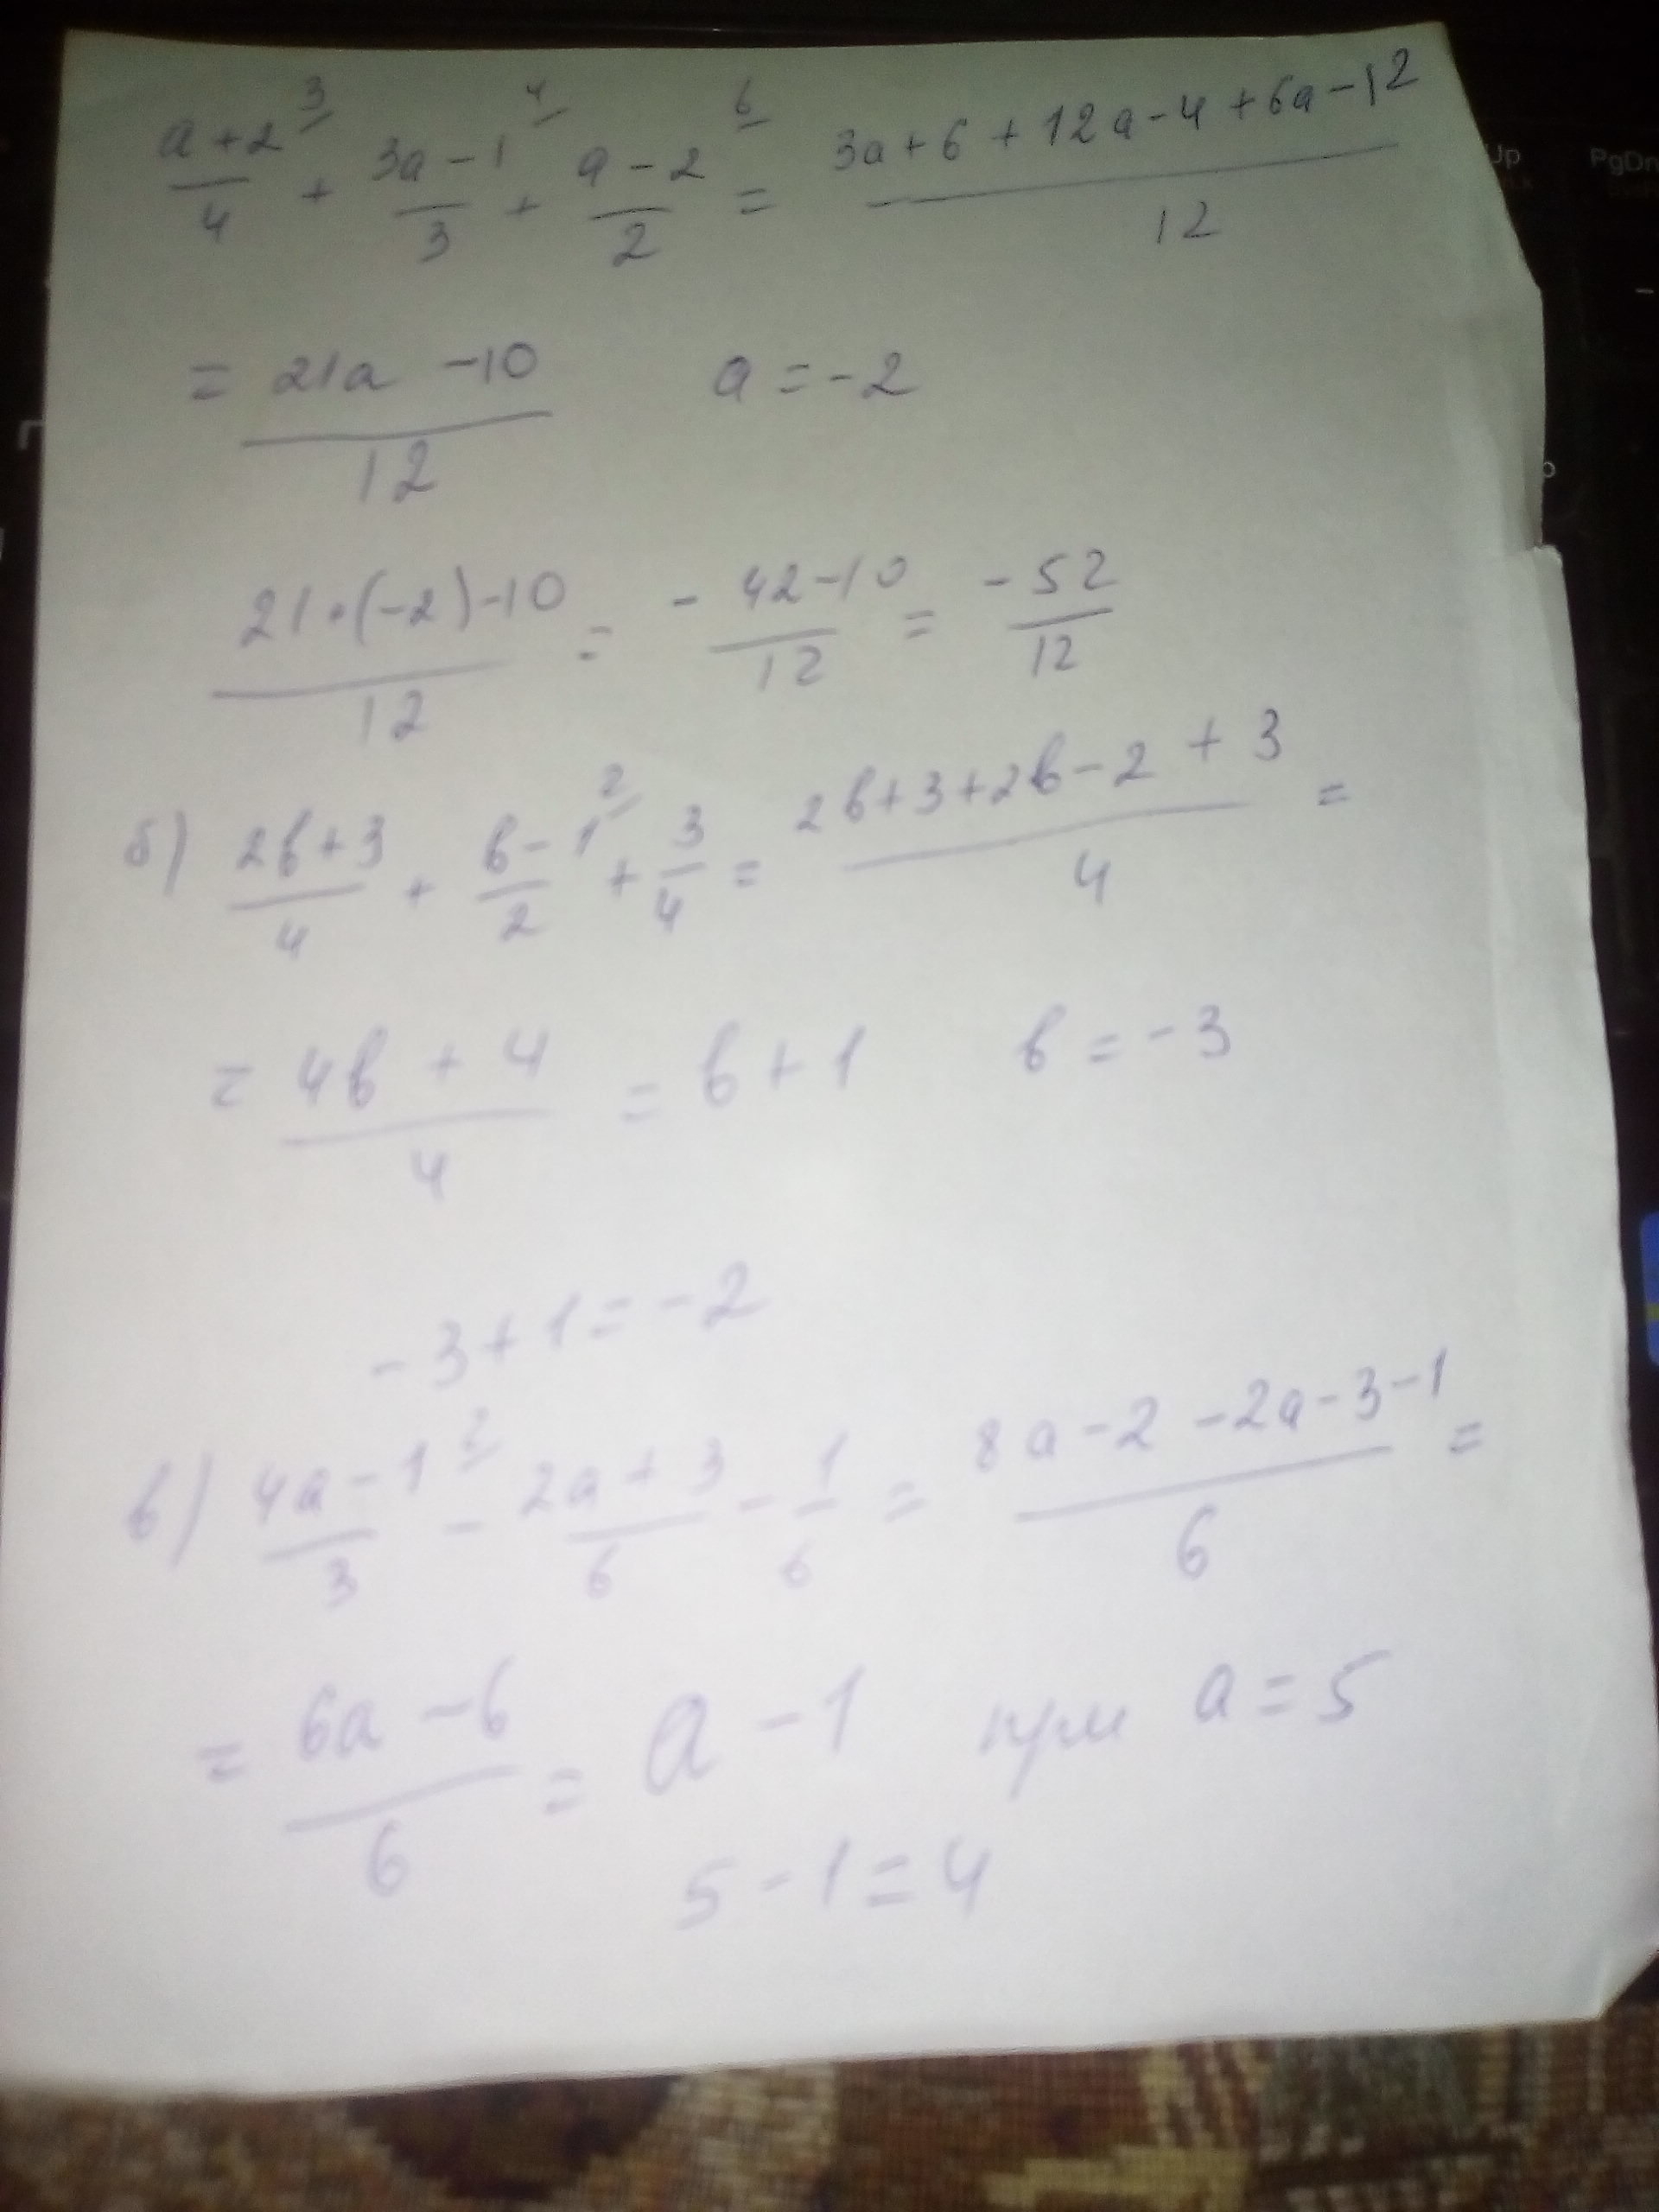 (a+2)/4 ³ + (3a-1)/3 ⁴ + (a-2)/2 ⁶ = (3a+6+12a-4+6a-12)/12
= (21a-10)/12   a=-2
(21·(-2)-10)/12 = -(42-10)/12 = -52/12
б) (2b+3)/4 + (b-1)/2 ² + 3/4 = (2b+3+2b-2+3)/4 =
= (4b+4)/4 = b+1   b=-3
-3+1=-2
в) (4a-1)/3 ² - (2a+3)/6 - 1/6 = (8a-2-2a-3-1)/6 =
= (6a-6)/6 = a-1   при a=5
5-1=4
PgDn